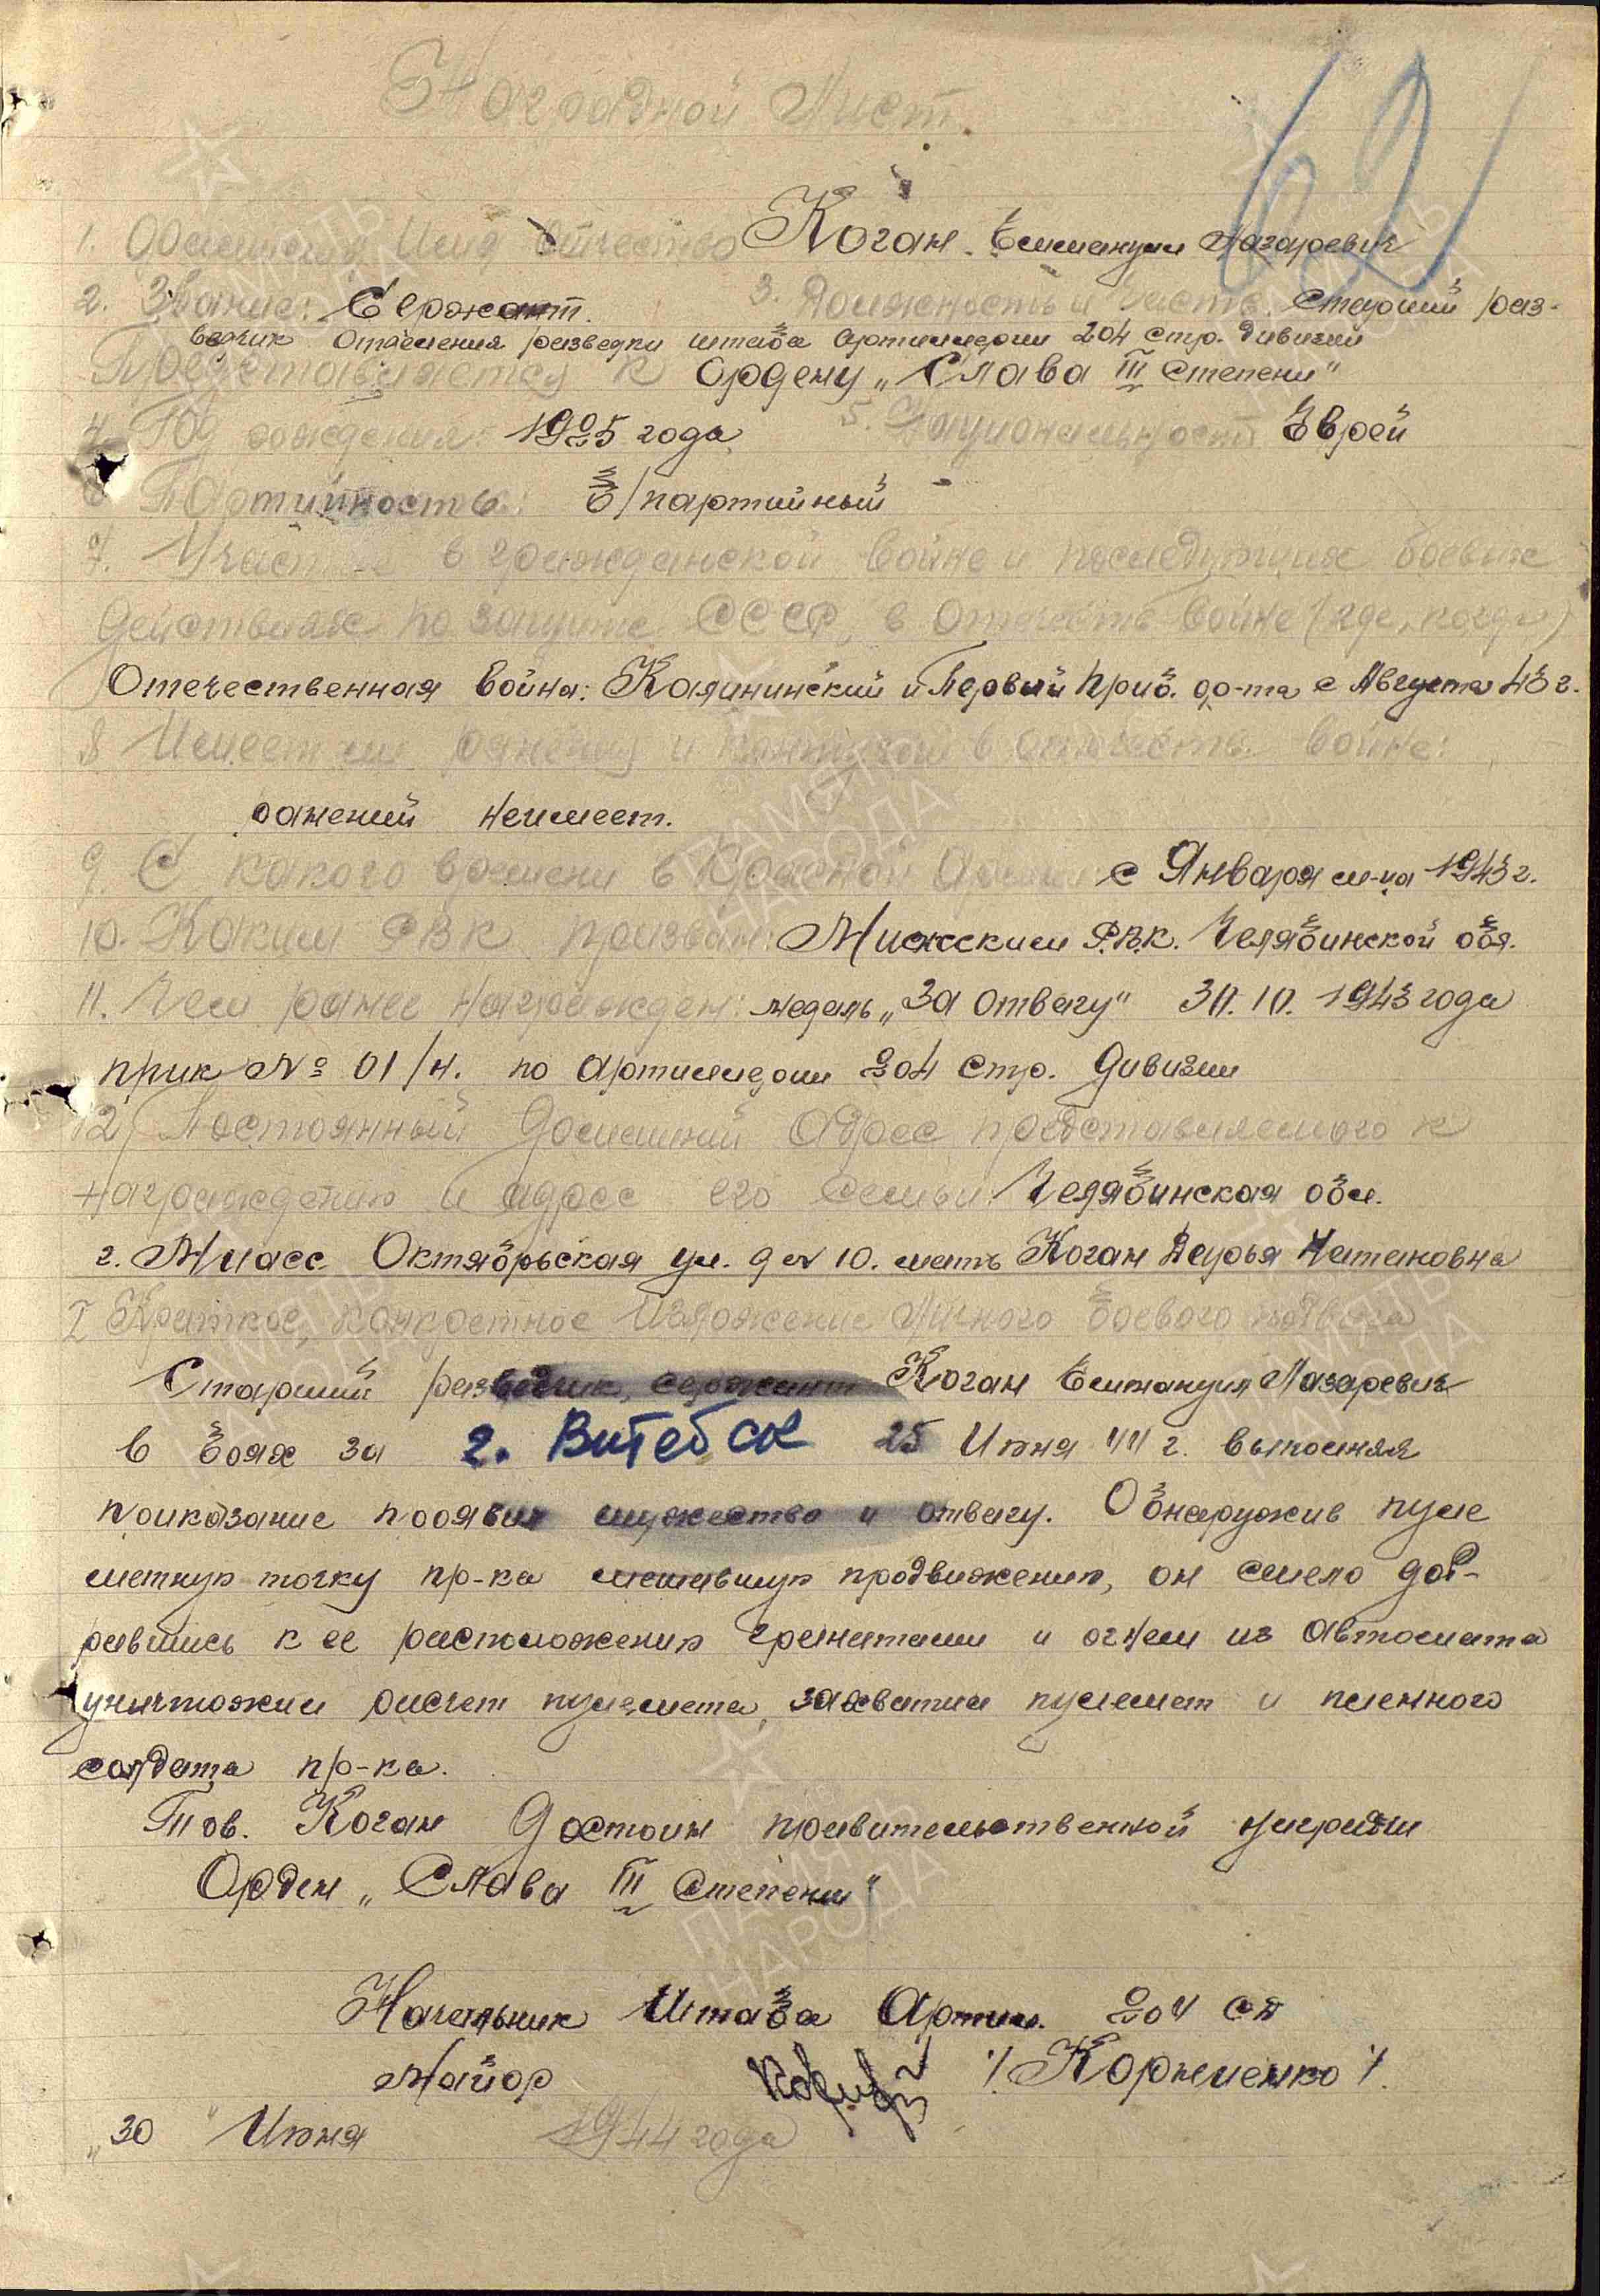 Наградной Лист.
62
1. Фамилия Имя Отчество Коган Еммануил Лазаревич
2. Звание: Сержант. 3. Должность и часть. Старший раз-
ведчик Отделения разведки штаба артиллерии 204 стр. дивизии
Представляется к Ордену „Слава III степени"
4. Год рождения: 1925 года. 5. Национальность Еврей
6 Партийность: Б/партийный
7. Участие в гражданской войне и последующих боевых
действиях по защите СССР, в Отечеств войне (где, когда)
Отечественная война: Калининский и Первый Приб. фр-та с Августа 43 г.
8 Имеет ли ранения и контузии в отечеств. войне:
ранений неимеет.
9. С какого времени в Красной Армии с Января м-ца 1943 г.
10. Каким РВК призван: Миасским Р.В.К. Челябинской обл.
11. Чем ранее награжден: медаль „За отвагу" 30.10.1943 года
прик № 01/н. по артиллерии 204 стр. дивизии
12, Постоянный домашний адрес представляемого к
награждению и адрес его семьи: Челябинская обл.
г. Миасс Октябрьская ул. д № 10. мать Коган Натановна
I Краткое, конкретное изложение личного боевого подвига
Старший разведчик, сержант Коган Еммануил Лазаревич
в боях за г. Витебск 25 Июня 44 г. выполняя
приказание проявил мужество и отвагу. Обнаружив пуле
метную точку пр-ка мешавшую продвижению, он смело
равшись к ее расположению гранатами и огнем из автомата
уничтожил расчет пулемета, захватил пулемет и пленного
солдата пр-ка.
Тов. Коган достоин правительственной награды
Орден „Слава III степени"
Начальник Штаба Артил. 204 сд
Майор /Корниенко/.
„30 " Июня 1944 года
ПАМЯТЬ
НАРОДА